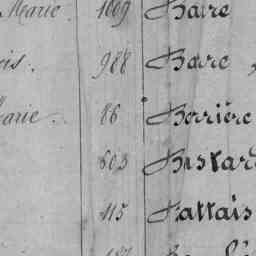 Marie. 1609 Barre
ois. 988 Barre,
Marie. 86 Berrière
803 Bistard
415 Battais